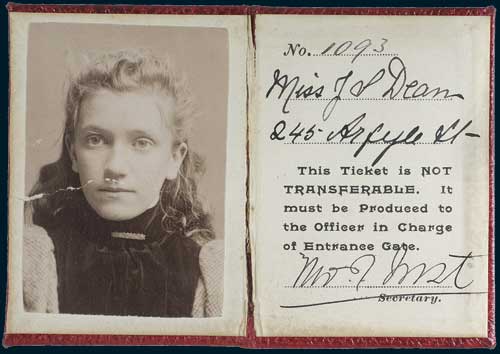 No. 1093
Miss J S Dean
245 Argyle St
This Ticket is NOT
TRANSFERABLE. It
must be Produced to
the Officer in Charge
of Entrance Gate.
Secretary.